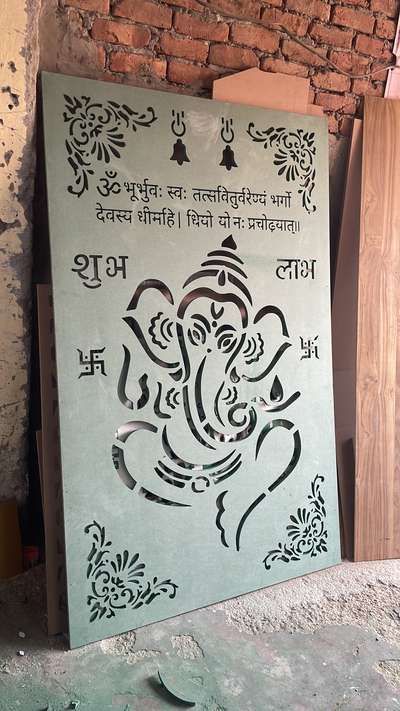 ॐ भूर्भुवः स्वः तत्सवितुर्वरेण्यं भर्गो
देवस्य धीमहि। धियो यो नः प्रचोढ़यात्॥
शुभ लाभ